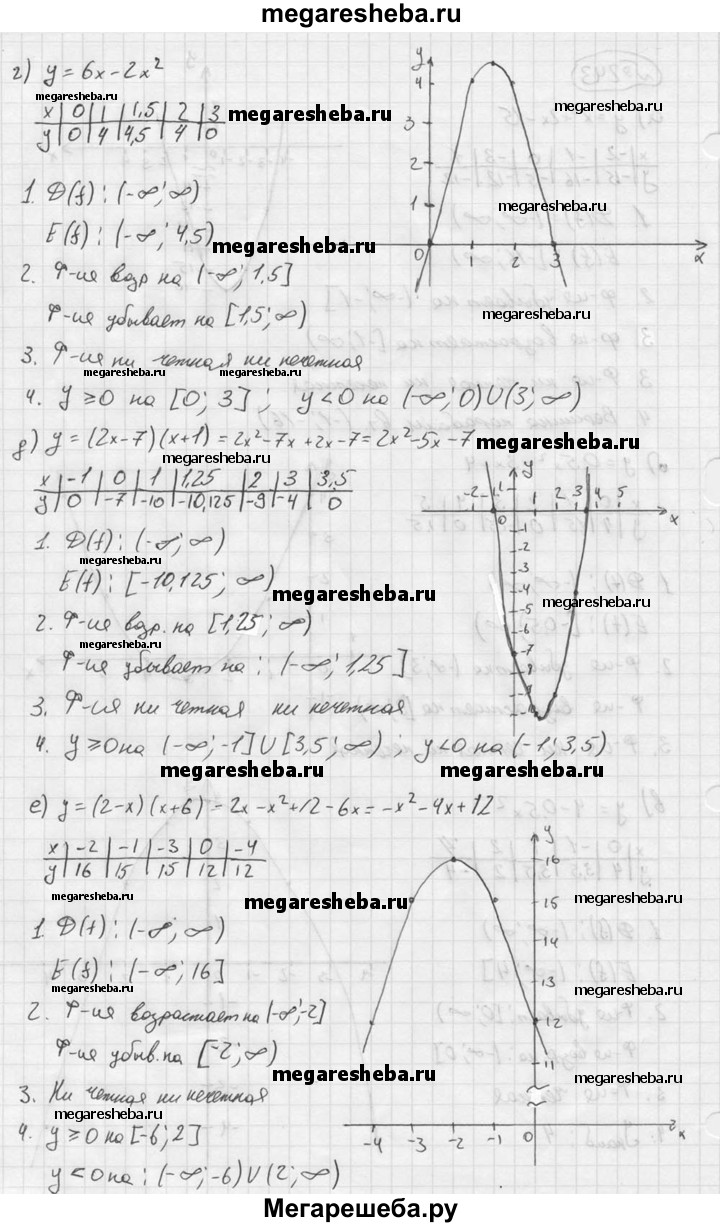 megaresheba.ru
г) y = 6x - 2x²
megaresheba.ru
x | 0 | 1 | 1,5 | 2 | 3
y | 0 | 4 | 4,5 | 4 | 0
megaresheba.ru
megaresheba.ru
1. D(f): (-∞; ∞)
megaresheba.ru
E(f): (-∞; 4,5)
megaresheba.ru
2. Ф-ие возр на (-∞; 1,5]
Ф-ие убывает на [1,5; ∞)
megaresheba.ru
3. Ф-ие ни четная ни нечетная
megaresheba.ru megaresheba.ru
4. y ≥ 0 на [0; 3] ; y < 0 на (-∞; 0) U (3; ∞)
y
3
2
1
0 1 2 3 x
д) y = (2x-7)(x+1) = 2x²-7x+2x-7 = 2x²-5x-7
megaresheba.ru
x | -1 | 0 | 1 | 1,25 | 2 | 3 | 3,5
y | 0 | -7 | -10 | -10,125 | -9 | -4 | 0
1. D(f): (-∞; ∞)
megaresheba.ru
E(f): [-10,125; ∞)
megaresheba.ru
megaresheba.ru
2. Ф-ие возр. на [1,25; ∞)
megaresheba.ru
Ф-ие убывает на: (-∞; 1,25]
3. Ф-ия ни четная ни нечетная
4. y ≥ 0 на (-∞; -1] U [3,5; ∞) ; y < 0 на (-1; 3,5)
megaresheba.ru megaresheba.ru
y
1
-2 -1 0 1 2 3 4 5 x
-1
-2
-3
-4
-5
-6
-7
-8
е) y = (2-x)(x+6) = 2x-x²+12-6x = -x²-4x+12
x | -2 | -1 | -3 | 0 | -4
y | 16 | 15 | 15 | 12 | 12
megaresheba.ru
megaresheba.ru
megaresheba.ru
1 D(f): (-∞; ∞)
E(f): (-∞; 16]
megaresheba.ru
megaresheba.ru
2. Ф-ие возрастает на (-∞; -2]
Ф-ие убыв. на [-2; ∞)
megaresheba.ru
megaresheba.ru
3. Ни четная ни нечетная
megaresheba.ru
megaresheba.ru
4. y ≥ 0 на [-6; 2]
y < 0 на: (-∞; -6) U (2; ∞)
y
16
15
14
13
12
11
-4 -3 -2 -1 0 x
Мегарешеба.ру